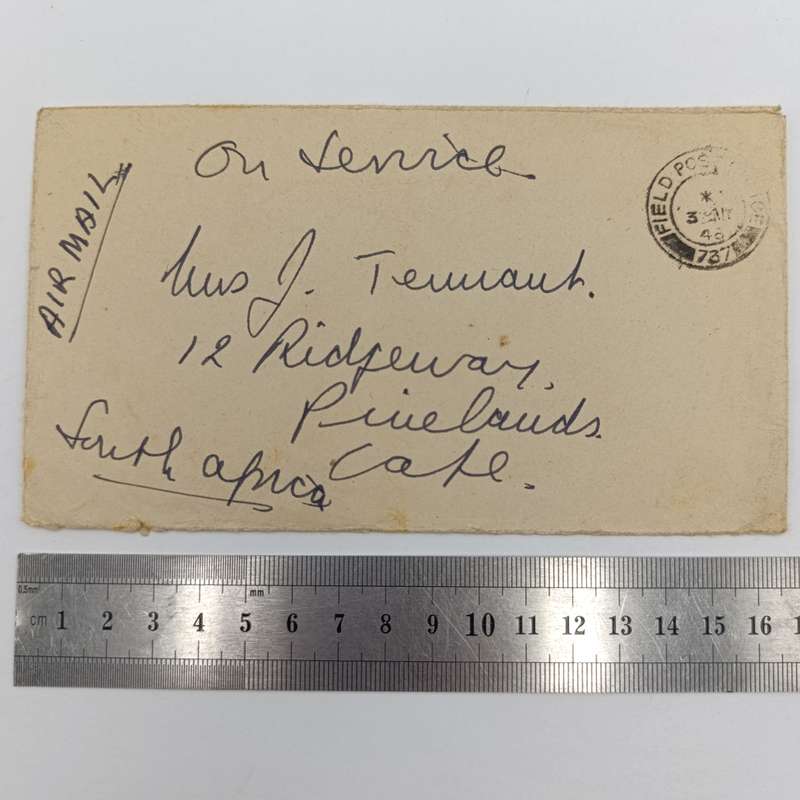 On Service
AIR MAIL
Mrs J. Tennant.
12 Ridgeway,
Pinelands.
Cape.
South Africa
FIELD POST
*
48
737
0.5mm
mm
cm 1 2 3 4 5 6 7 8 9 10 11 12 13 14 15 16